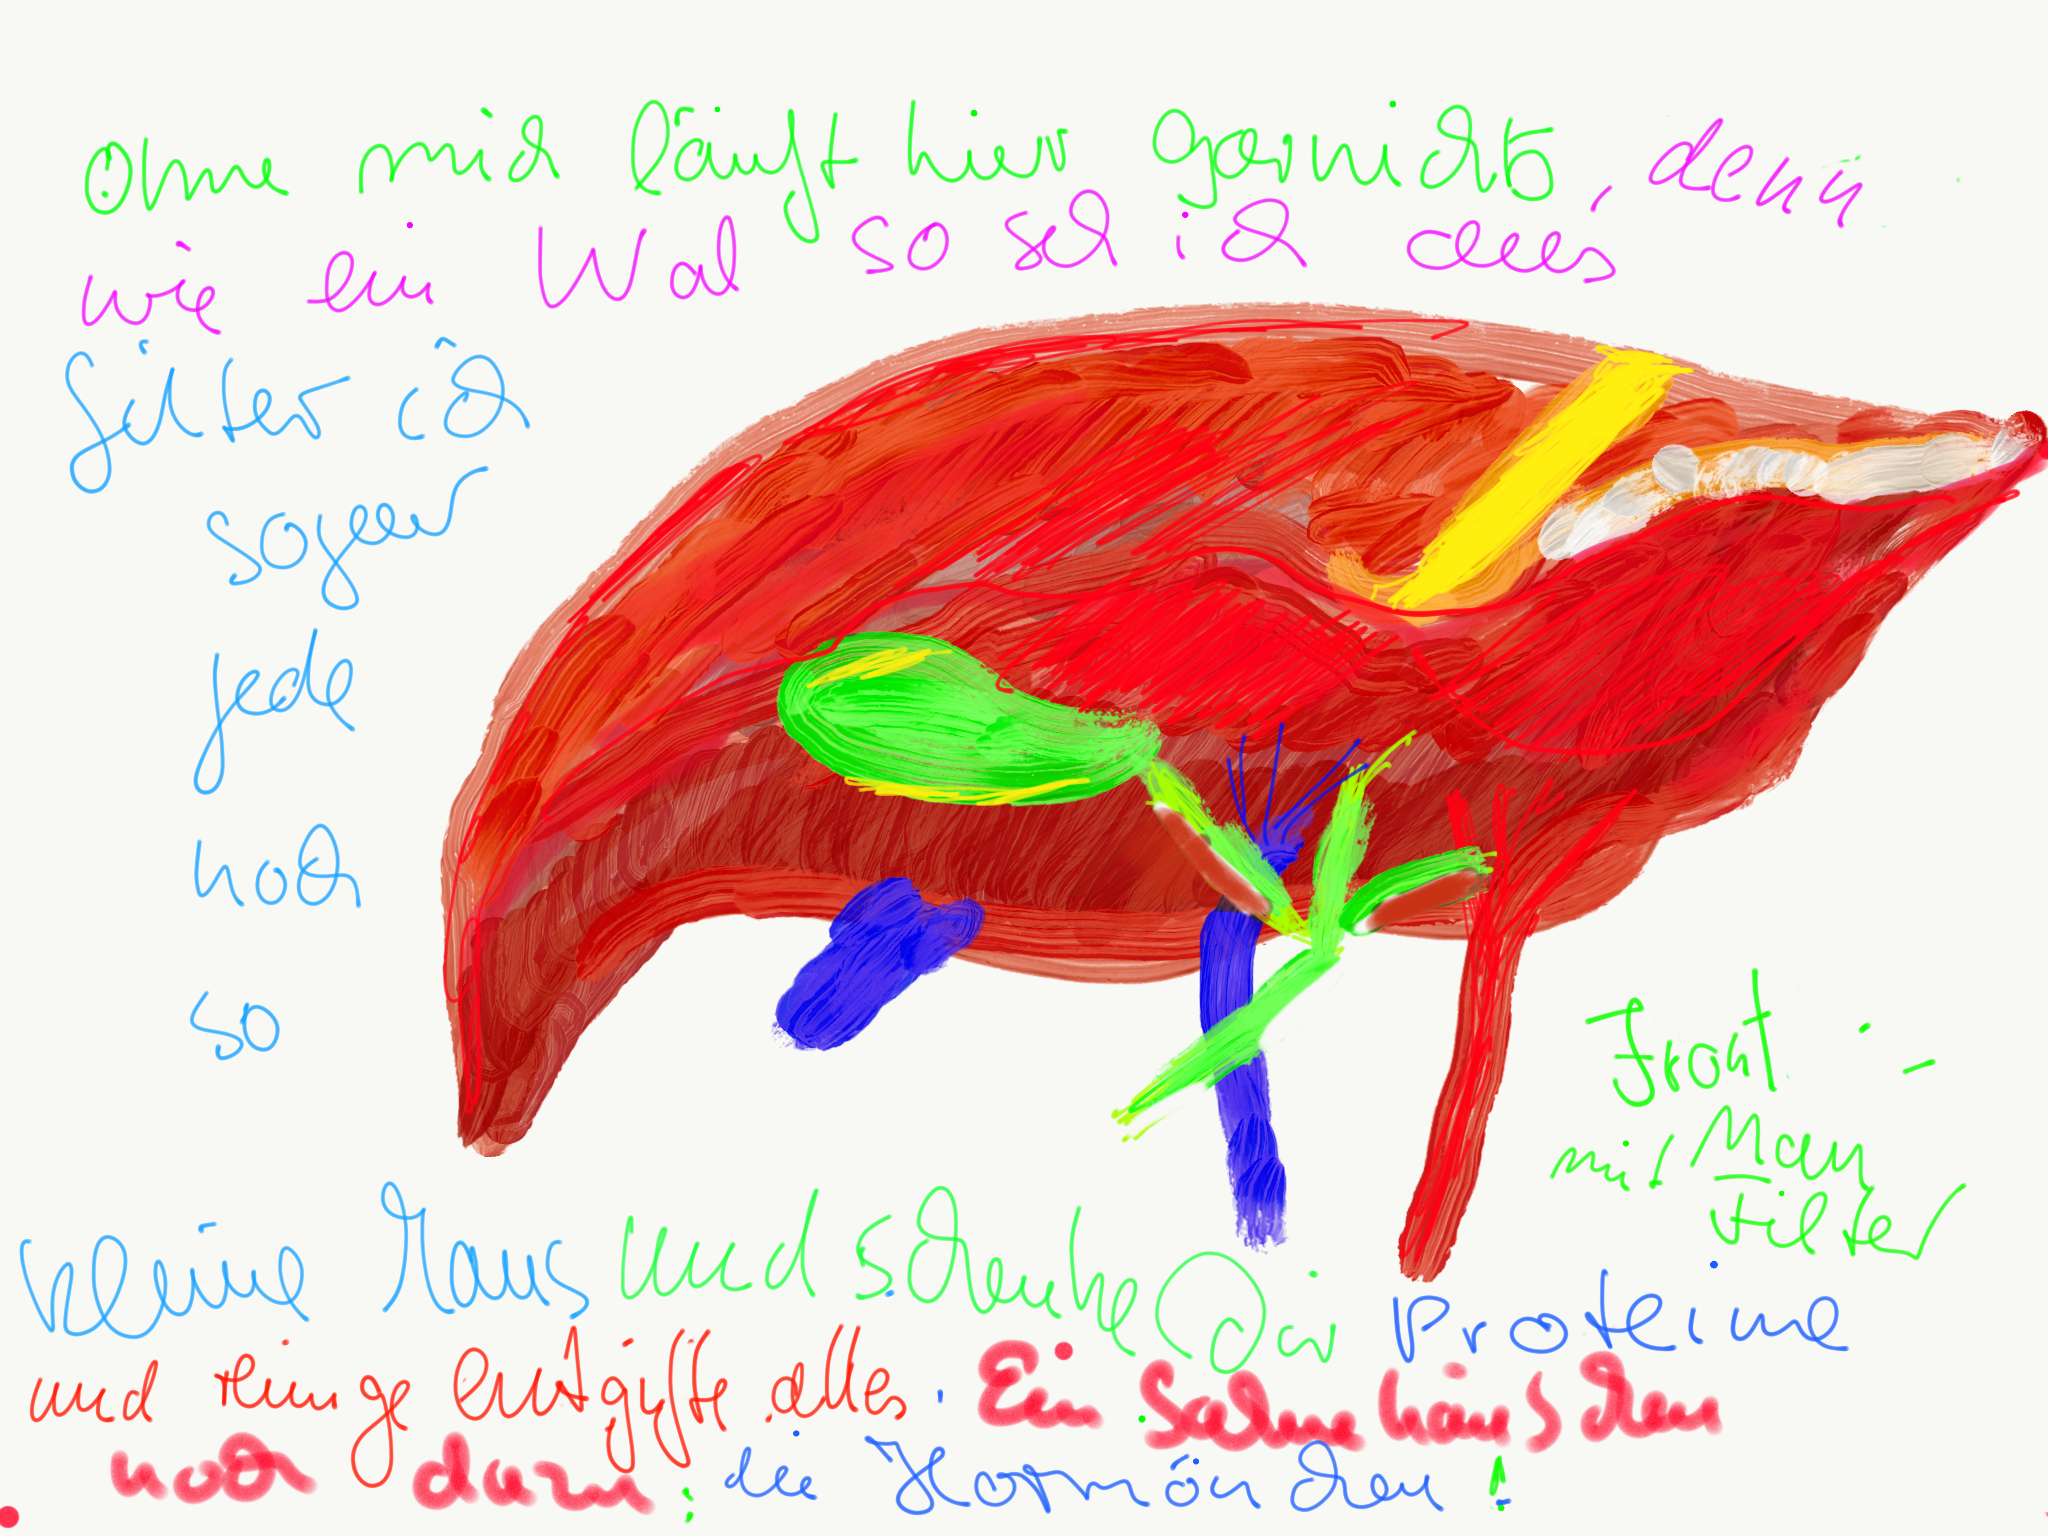 Ohne mich läuft hier garnichts, denn
wie ein Wal so seh ich aus
filter ich
sogar
jede
noch
so
Front-
Man
mit Filter
kleine Maus und schenke Dir Proteine
und reinige entgifte alles. Ein Sahnehäuschen
noch dazu; die Hormönchen!